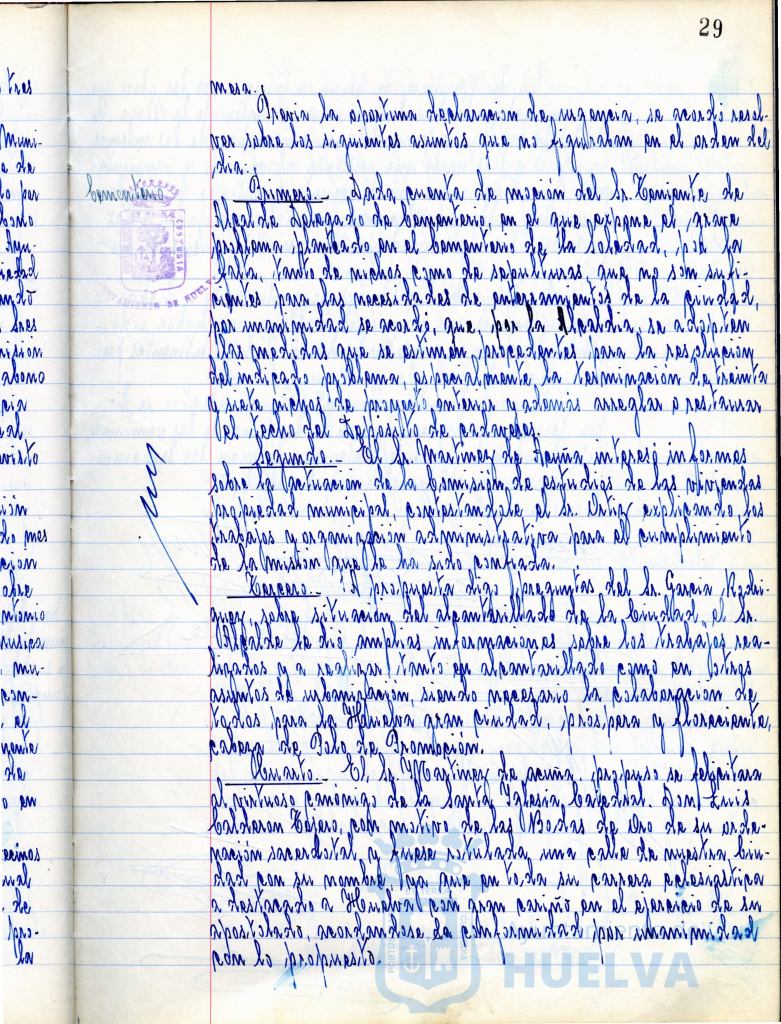 29
mesa.
Previa la oportuna declaración de urgencia, se acordó resol-
ver sobre los siguientes asuntos que no figuraban en el orden del
dia:
Cementerio
Primero.- Dada cuenta de moción del Sr. Teniente de
Alcalde Delegado de Cementerio, en el que expone el grave
problema planteado en el Cementerio de la Soledad, por la
falta, tanto de nichos como de sepulturas, que no son sufi-
cientes para las necesidades de enterramientos de la ciudad,
por unanimidad se acordó, que, por la Alcaldia, se adopten
las medidas que se estimen procedentes para la resolución
del indicado problema, especialmente, la terminación de treinta
y siete nichos de proyecto anterior y además arreglar o restaurar
el techo del Depósito de cadaveres.
Segundo.- El Sr. Martinez de Acuña interesó informes
sobre la actuación de la Comisión de estudios de las viviendas
propiedad municipal, contestandole el Sr. Ortiz explicando los
trabajos y organización administrativa para el cumplimiento
de la misión que le ha sido confiada.
Tercero.- A propuesta digo preguntas del Sr. Garcia Rodri-
guez, sobre situación del alcantarillado de la Ciudad, el Sr.
Alcalde le dió amplias informaciones sobre los trabajos rea-
lizados y a realizar tanto en alcantarillado como en otros
asuntos de urbanización, siendo necesario la colaboración de
todos para la Huelva gran ciudad, próspera y floreciente,
cabeza de Polo de Promoción.
Cuarto.- El Sr. Martinez de Acuña propuso se felicitara
al virtuoso canónigo de la Santa Iglesia Catedral. Don Luis
Calderon Tejero, con motivo de las Bodas de Oro de su orde-
nación sacerdotal y fuese rotulada una calle de nuestra Ciu-
dad con su nombre, ya que en toda su carrera eclesiástica
a destacado a Huelva con gran cariño en el ejercicio de su
apostolado, acordandose de conformidad por unanimidad
con lo propuesto.
HUELVA